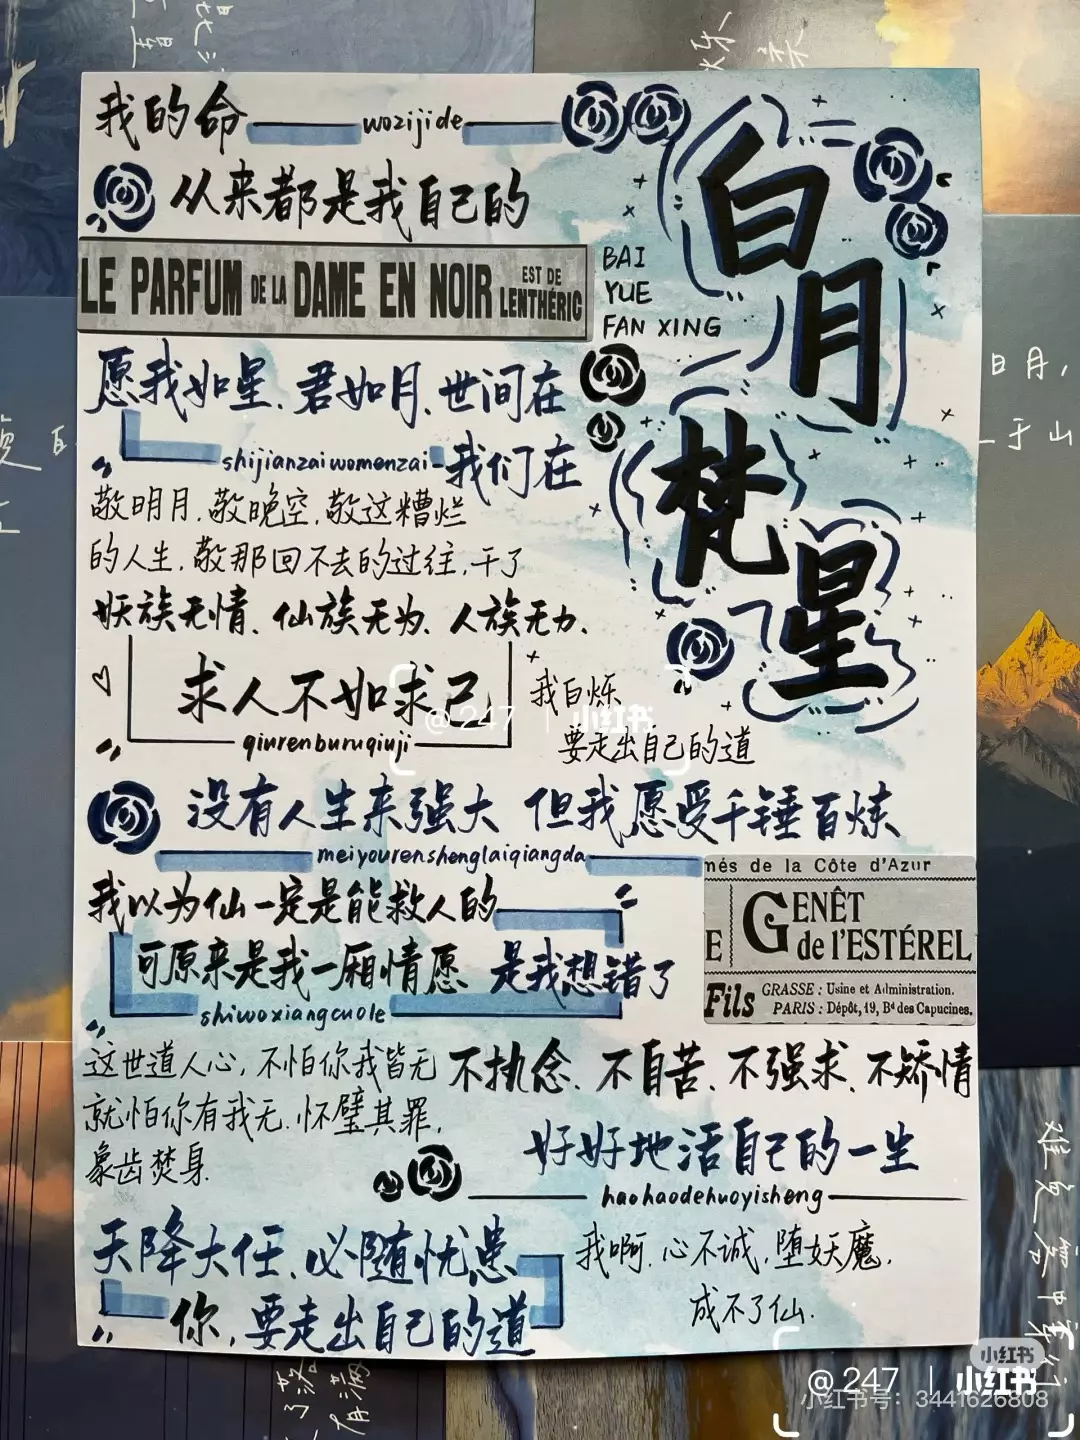 我的命
wozijide
从来都是我自己的
LE PARFUM DE LA DAME EN NOIR EST DE LENTHÉRIC
白月
梵星
BAI
YUE
FAN XING
愿我如星、君如月、世间在
shijianzaiwomenzai 我们在
敬明月,敬晚空,敬这糟烂
的人生,敬那回不去的过往,干了
妖族无情、仙族无为、人族无力、
求人不如求己
qiurenburuqiuji
我白烁
要走出自己的道
没有人生来强大 但我愿受千锤百炼
meiyourenshenglaiqiangda
我以为仙一定是能救人的
可原来是我一厢情愿 是我想错了
shiwoxiangcuole
més de la Côte d'Azur
E GENÊT
de l'ESTÉREL
Fils GRASSE : Usine et Administration.
PARIS : Dépôt, 19, Bd des Capucines.
这世道人心,不怕你我皆无
就怕你有我无.怀璧其罪,
象齿焚身.
不执念、不自苦、不强求、不矫情
好好地活自己的一生
haohaodehuoyisheng
天降大任、必随忧患
你,要走出自己的道
我啊,心不诚,堕妖魔,
成不了仙.
@247 | 小红书
小红书
@247 | 小红书
小红书号：3441626808
日月,
于山